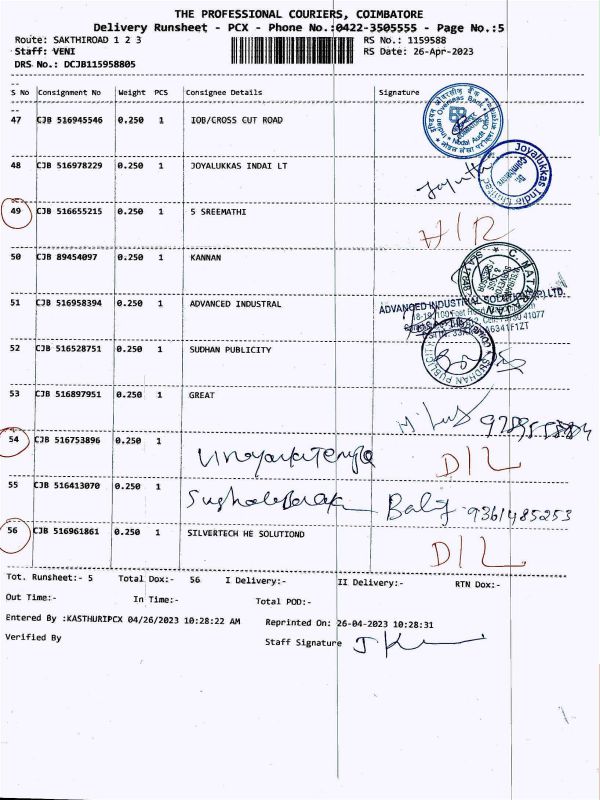 THE PROFESSIONAL COURIERS, COIMBATORE
Delivery Runsheet - PCX - Phone No.:0422-3505555 - Page No.:5
Route: SAKTHIROAD 1 2 3 RS No.: 1159588
Staff: VENI RS Date: 26-Apr-2023
DRS No.: DCJB115958805
S No Consignment No Weight PCS Consignee Details Signature
47 CJB 516945546 0.250 1 IOB/CROSS CUT ROAD
Indian Overseas Bank
48 CJB 516978229 0.250 1 JOYALUKKAS INDAI LT
Joyalukkas India Limited
49 CJB 516655215 0.250 1 5 SREEMATHI
50 CJB 89454097 0.250 1 KANNAN
C. NATARAJAN
51 CJB 516958394 0.250 1 ADVANCED INDUSTRIAL
ADVANCED INDUSTRIAL SOLUTIONS
52 CJB 516528751 0.250 1 SUDHAN PUBLICITY
SUDHAN PUBLICITY
53 CJB 516897951 0.250 1 GREAT
54 CJB 516753896 0.250 1
D/L
55 CJB 516413070 0.250 1 9361485253
56 CJB 516961861 0.250 1 SILVERTECH HE SOLUTIOND
D/L
Tot. Runsheet:- 5 Total Dox:- 56 I Delivery:- II Delivery:- RTN Dox:-
Out Time:- In Time:- Total POD:-
Entered By :KASTHURIPCX 04/26/2023 10:28:22 AM Reprinted On: 26-04-2023 10:28:31
Verified By Staff Signature